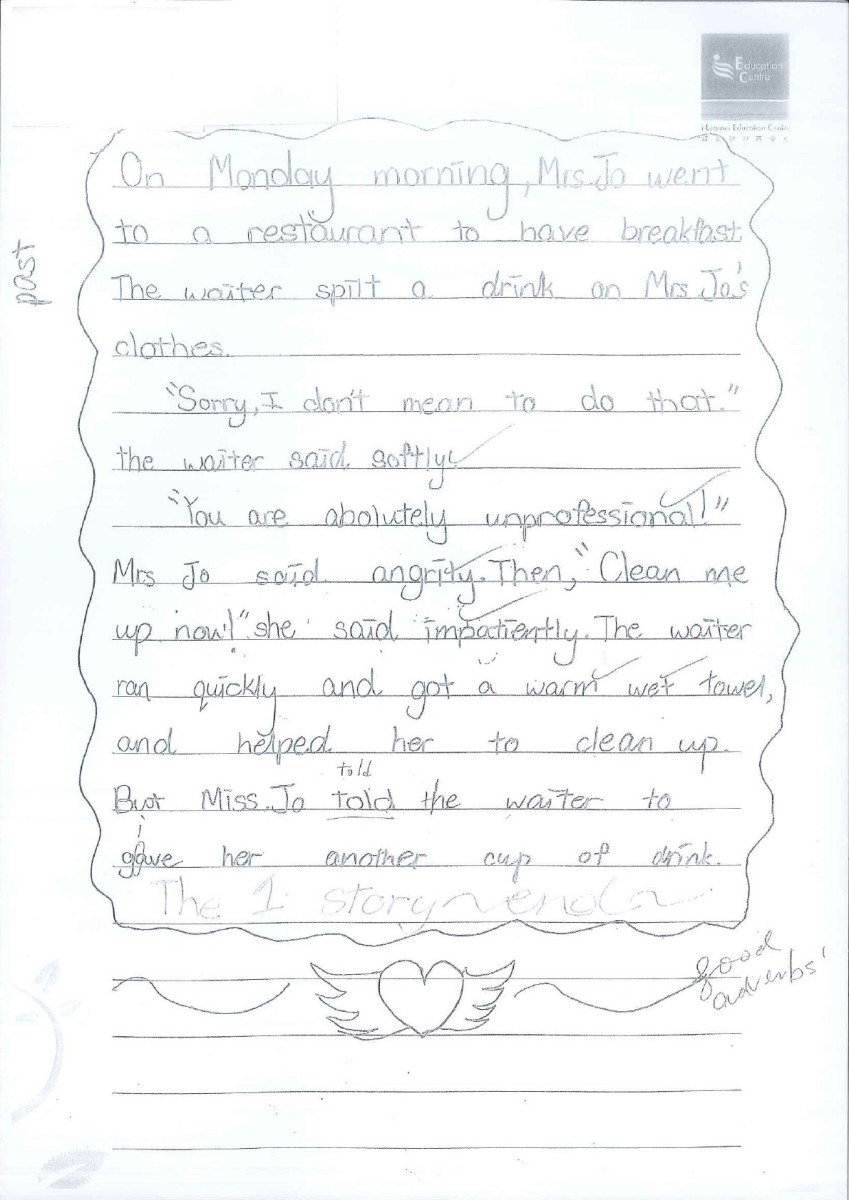 Education
Centre
past
On Monday morning, Mrs. Jo went
to a restaurant to have breakfast.
The waiter spilt a drink on Mrs Jo's
clothes.
"Sorry, I don't mean to do that."
the waiter said softly.
"You are abolutely unprofessional!"
Mrs Jo said angrity. Then, "Clean me
up now!" she said impatiently. The waiter
ran quickly and got a warm wet towel,
and helped her to clean up.
told
But Miss. Jo told the waiter to
i
gave her another cup of drink.
The 1 story end
good
adverbs'